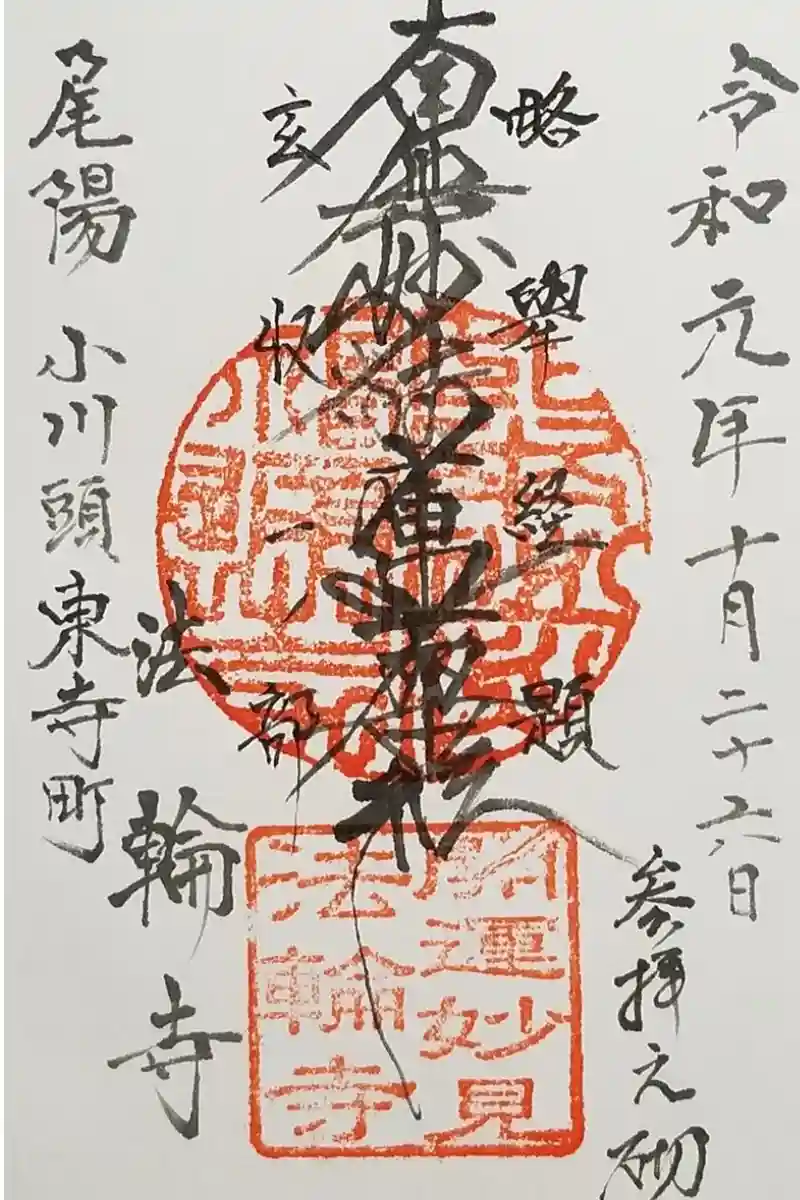 令和元年十月二十六日
参拝之砌
略擧経題
南無妙法蓮華経
玄収一部
開運妙見
法輪寺
法輪寺
尾陽 小川頭東寺町